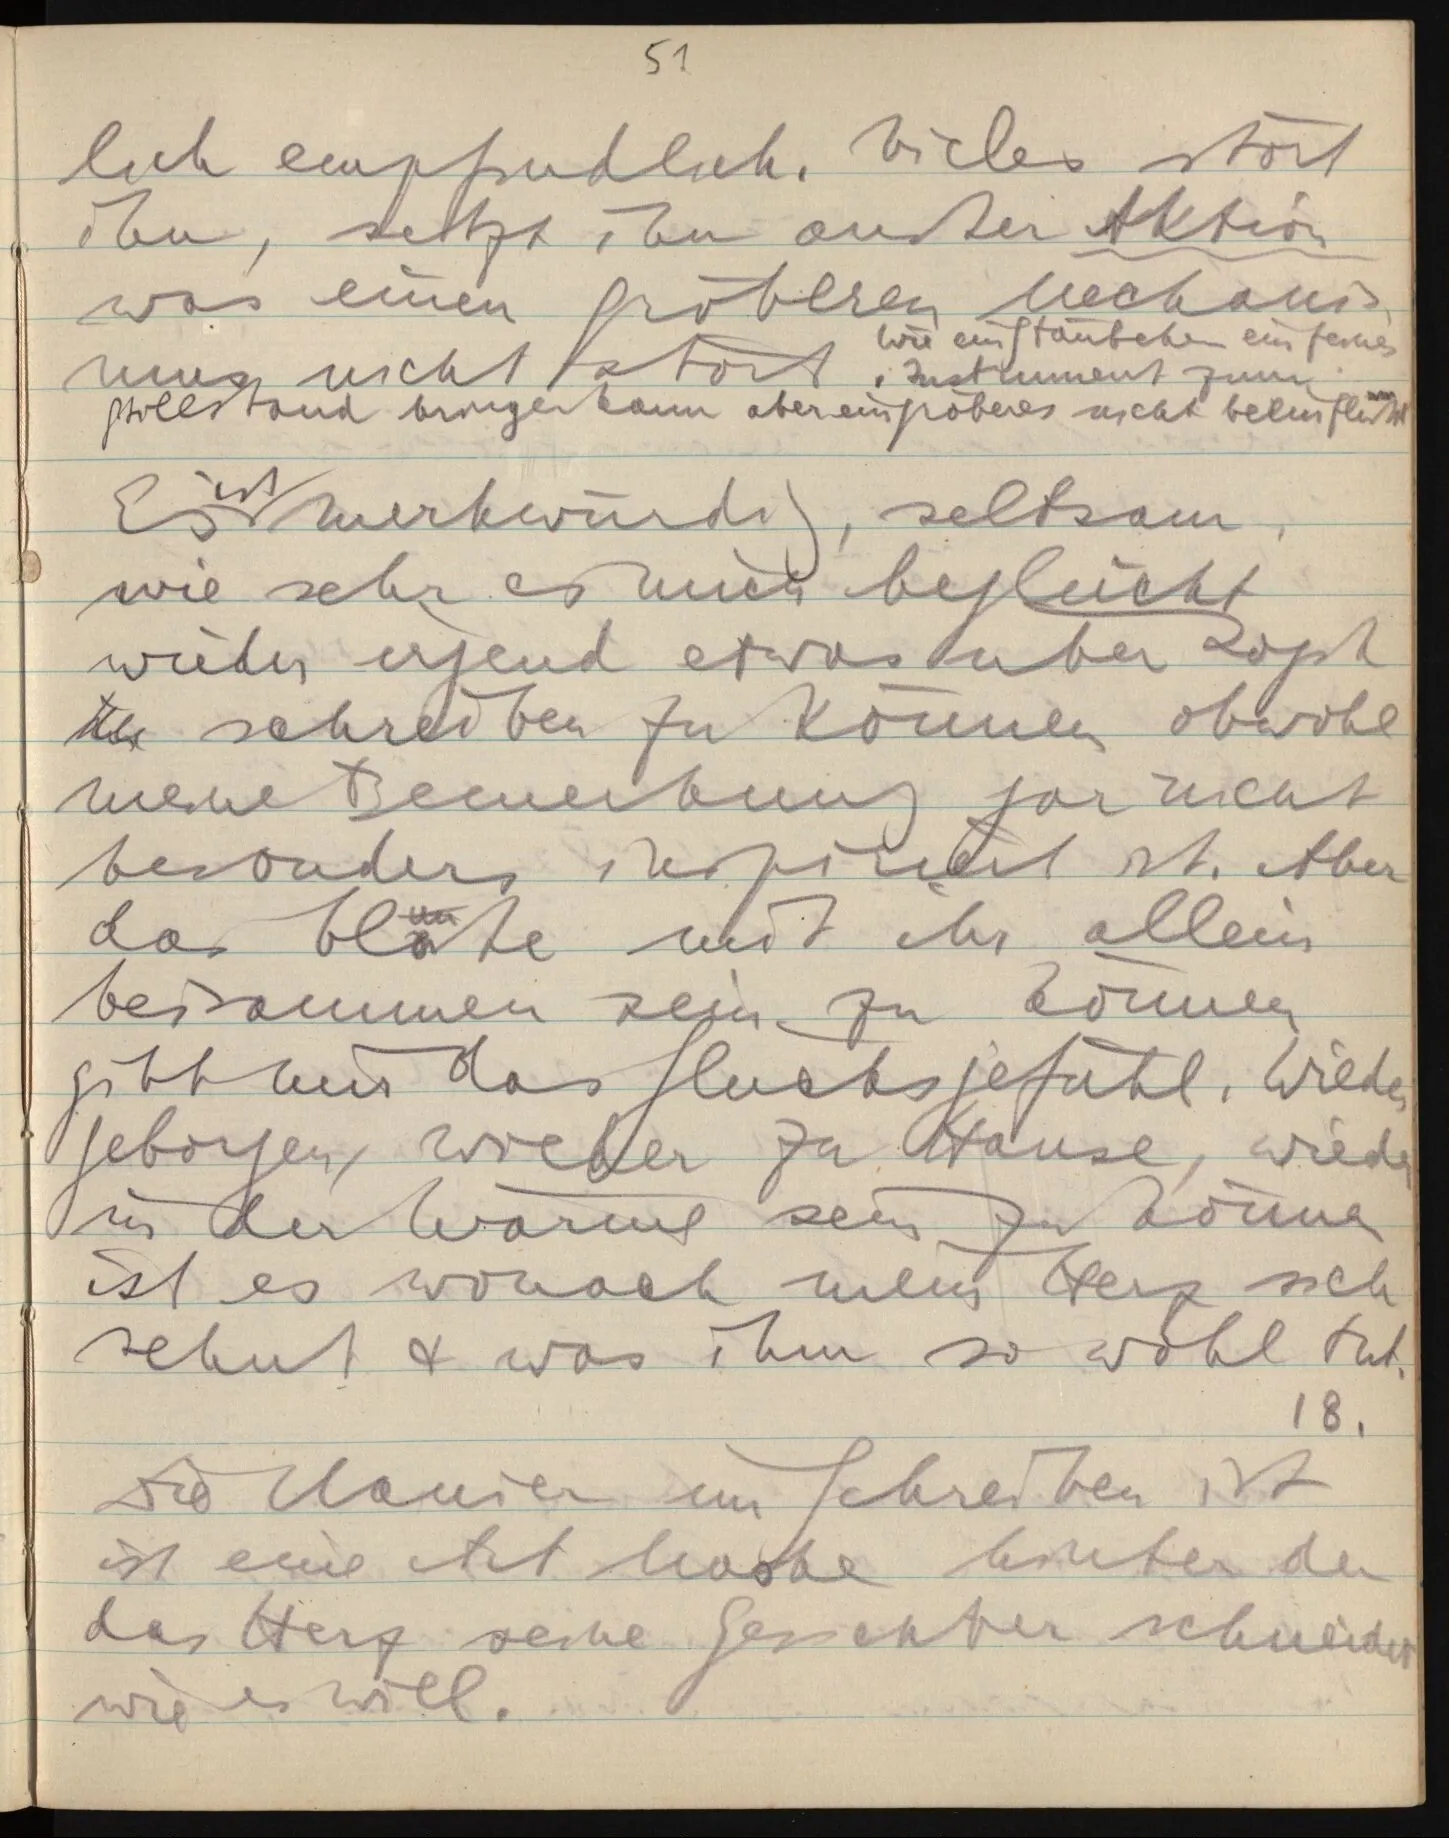 51
lich empfindlich. Vieles stört
ihn, setzt ihn ausser Aktion
was einen gröberen Mechanis-
mus nicht stört wie ein Stäubchen ein feines
Instrument zum
Stillstand bringen kann aber ein gröberes nicht beeinflusst
Es ist merkwürdig, seltsam,
wie sehr es mich beglückt
wieder irgend etwas über Logik
schreiben zu können obwohl
meine Bemerkung gar nicht
besonders inspiriert ist. Aber
das bloße mit ihr allein
beisammen sein zu können
gibt mir das Glücksgefühl. Wieder
geborgen, wieder zu Hause, wieder
in der Wärme sein zu können
ist es wonach mein Herz sich
sehnt & was ihm so wohl tut.
18.
Die Manier im Schreiben ist
ist eine Art Maske hinter der
das Herz seine Gesichter schneidet
wie es will.